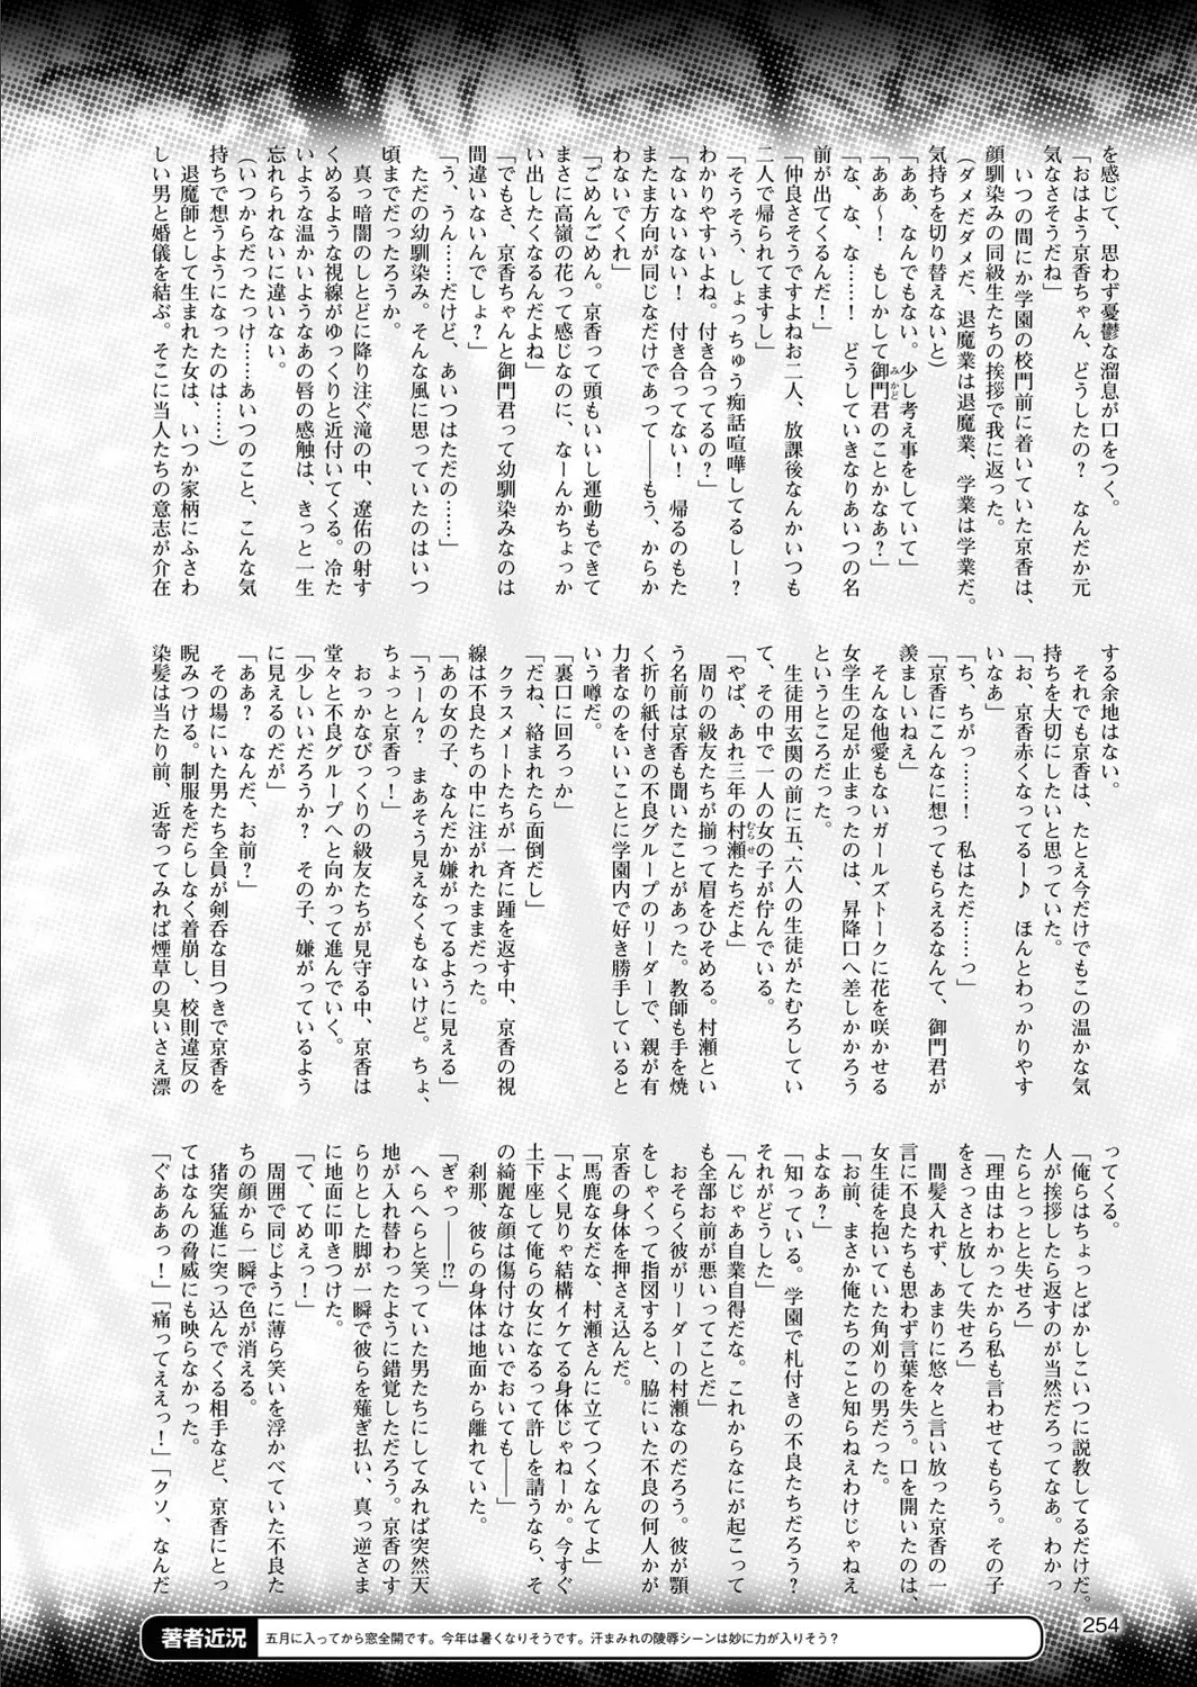 を感じて、思わず憂鬱な溜息が口をつく。
「おはよう京香ちゃん、どうしたの？　なんだか元
気なさそうだね」
　いつの間にか学園の校門前に着いていた京香は、
顔馴染みの同級生たちの挨拶で我に返った。
（ダメだダメだ、退魔業は退魔業、学業は学業だ。
気持ちを切り替えないと）
「ああ、なんでもない。少し考え事をしていて」
「ああ～！　もしかして御門君のことかなあ？」
「な、な、な……！　どうしていきなりあいつの名
前が出てくるんだ！」
「仲良さそうですよねお二人、放課後なんかいつも
二人で帰られてますし」
「そうそう、しょっちゅう痴話喧嘩してるしー？
わかりやすいよね。付き合ってるの？」
「ないないない！　付き合ってない！　帰るのもた
またま方向が同じなだけであって――もう、からか
わないでくれ」
「ごめんごめん。京香って頭もいいし運動もできて
まさに高嶺の花って感じなのに、なーんかちょっか
い出したくなるんだよね」
「でもさ、京香ちゃんと御門君って幼馴染みなのは
間違いないんでしょ？」
「う、うん……だけど、あいつはただの……」
　ただの幼馴染み。そんな風に思っていたのはいつ
頃までだったろうか。
　真っ暗闇のしとどに降り注ぐ滝の中、遼佑の射す
くめるような視線がゆっくりと近付いてくる。冷た
いような温かいようなあの唇の感触は、きっと一生
忘れられないに違いない。
（いつからだったっけ……あいつのこと、こんな気
持ちで想うようになったのは……）
　退魔師として生まれた女は、いつか家柄にふさわ
しい男と婚儀を結ぶ。そこに当人たちの意志が介在
する余地はない。
　それでも京香は、たとえ今だけでもこの温かな気
持ちを大切にしたいと思っていた。
「お、京香赤くなってるー♪　ほんとわっかりやす
いなぁ」
「ち、ちがっ……！　私はただ……っ」
「京香にこんなに想ってもらえるなんて、御門君が
羨ましいねえ」
　そんな他愛もないガールズトークに花を咲かせる
女学生の足が止まったのは、昇降口へ差しかかろう
というところだった。
　生徒用玄関の前に五、六人の生徒がたむろしてい
て、その中で一人の女の子が佇んでいる。
「やば、あれ三年の村瀬たちだよ」
　周りの級友たちが揃って眉をひそめる。村瀬とい
う名前は京香も聞いたことがあった。教師も手を焼
く折り紙付きの不良グループのリーダーで、親が有
力者なのをいいことに学園内で好き勝手していると
いう噂だ。
「裏口に回ろっか」
「だね、絡まれたら面倒だし」
　クラスメートたちが一斉に踵を返す中、京香の視
線は不良たちの中に注がれたままだった。
「あの女の子、なんだか嫌がってるように見える」
「うーん？　まあそう見えなくもないけど。ちょ、
ちょっと京香っ！」
　おっかなびっくりの級友たちが見守る中、京香は
堂々と不良グループへと向かって進んでいく。
「少しいいだろうか？　その子、嫌がっているよう
に見えるのだが」
「ああ？　なんだ、お前？」
　その場にいた男たち全員が剣呑な目つきで京香を
睨みつける。制服をだらしなく着崩し、校則違反の
染髪は当たり前、近寄ってみれば煙草の臭いさえ漂
ってくる。
「俺らはちょっとばかしこいつに説教してるだけだ。
人が挨拶したら返すのが当然だろってなあ。わかっ
たらとっとと失せろ」
「理由はわかったから私も言わせてもらう。その子
をさっさと放して失せろ」
　間髪入れず、あまりに悠々と言い放った京香の一
言に不良たちも思わず言葉を失う。口を開いたのは、
女生徒を抱いていた角刈りの男だった。
「お前、まさか俺たちのこと知らねえわけじゃねえ
よなあ？」
「知っている。学園で札付きの不良たちだろう？
それがどうした」
「んじゃあ自業自得だな。これからなにが起こって
も全部お前が悪いってことだ」
　おそらく彼がリーダーの村瀬なのだろう。彼が顎
をしゃくって指図すると、脇にいた不良の何人かが
京香の身体を押さえ込んだ。
「馬鹿な女だな、村瀬さんに立てつくなんてよ」
「よく見りゃ結構イケてる身体じゃねーか。今すぐ
土下座して俺らの女になるって許しを請うなら、そ
の綺麗な顔は傷付けないでおいても――」
　刹那、彼らの身体は地面から離れていた。
「ぎゃっ――!?」
　へらへらと笑っていた男たちにしてみれば突然天
地が入れ替わったように錯覚しただろう。京香のす
らりとした脚が一瞬で彼らを薙ぎ払い、真っ逆さま
に地面に叩きつけた。
「て、てめえっ！」
　周囲で同じように薄ら笑いを浮かべていた不良た
ちの顔から一瞬で色が消える。
　猪突猛進に突っ込んでくる相手など、京香にとっ
てはなんの脅威にも映らなかった。
「ぐあああっ！」「痛ってえっ！」「クソ、なんだ
254
著者近況
五月に入ってから窓全開です。今年は暑くなりそうです。汗まみれの陵辱シーンは妙に力が入りそう？